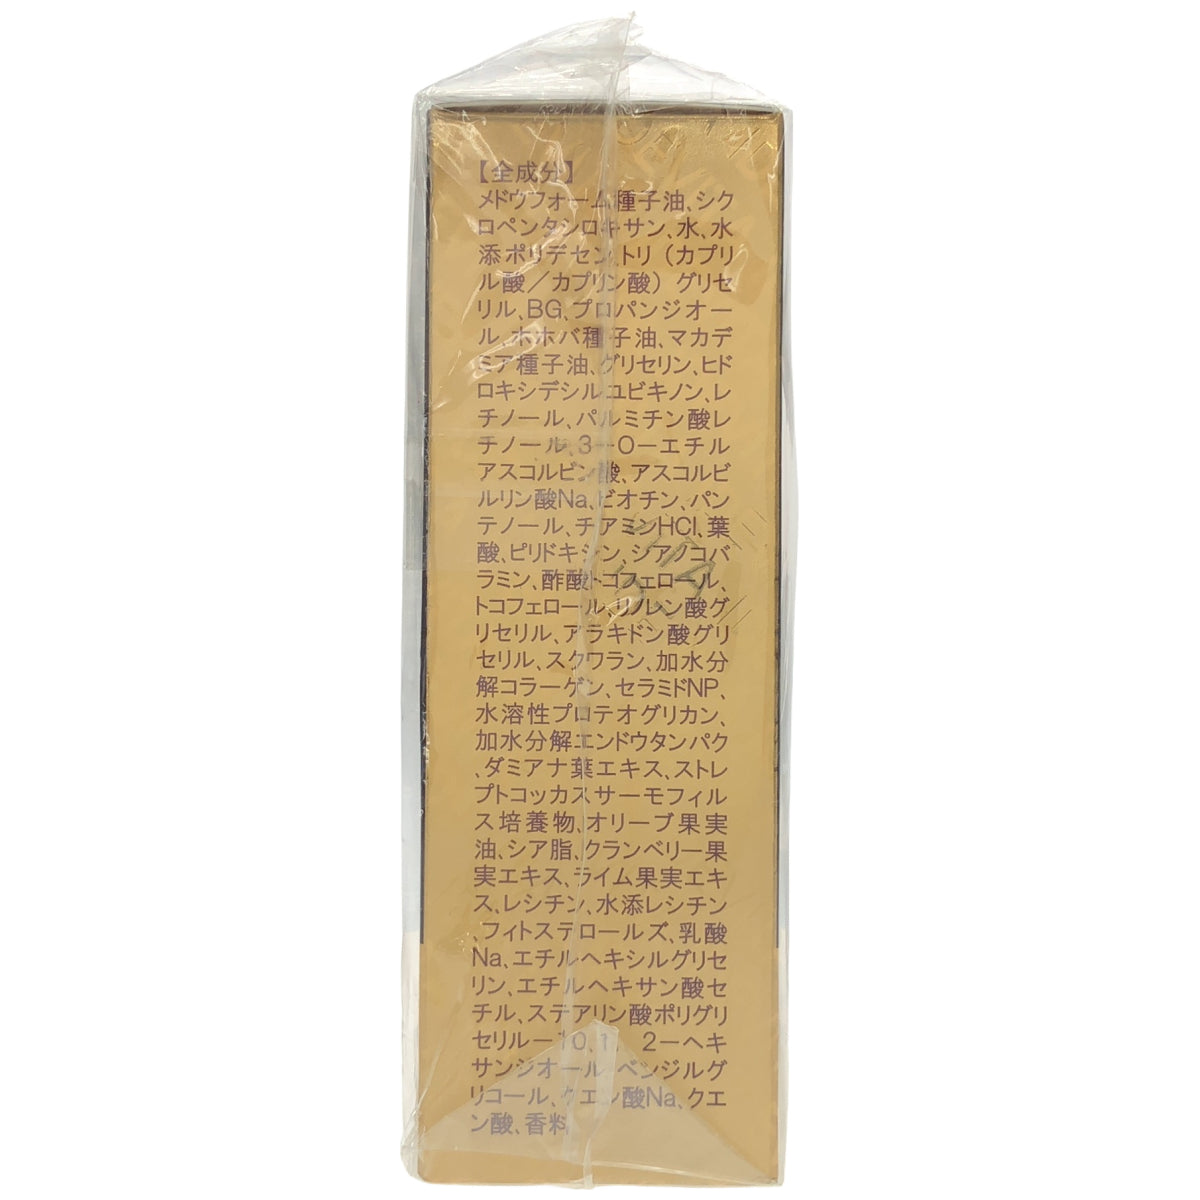 【全成分】
メドウフォーム種子油、シク
ロペンタシロキサン、水、水
添ポリデセン、トリ（カプリ
ル酸／カプリン酸）グリセ
リル、BG、プロパンジオー
ル、ホホバ種子油、マカデ
ミア種子油、グリセリン、ヒド
ロキシデシルユビキノン、レ
チノール、パルミチン酸レ
チノール、3－O－エチル
アスコルビン酸、アスコルビ
ルリン酸Na、ビオチン、パン
テノール、チアミンHCl、葉
酸、ピリドキシン、シアノコバ
ラミン、酢酸トコフェロール、
トコフェロール、リノレン酸グ
リセリル、アラキドン酸グリ
セリル、スクワラン、加水分
解コラーゲン、セラミドNP、
水溶性プロテオグリカン、
加水分解エンドウタンパク
、ダミアナ葉エキス、ストレ
プトコッカスサーモフィル
ス培養物、オリーブ果実
油、シア脂、クランベリー果
実エキス、ライム果実エキ
ス、レシチン、水添レシチン
、フィトステロールズ、乳酸
Na、エチルヘキシルグリセ
リン、エチルヘキサン酸セ
チル、ステアリン酸ポリグリ
セリル－10、1，2－ヘキ
サンジオール、ベンジルグ
リコール、クエン酸Na、クエ
ン酸、香料